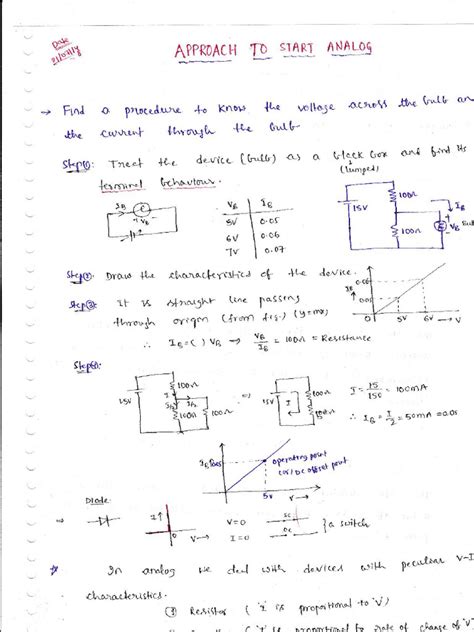 Date
21/07/14
APPROACH TO START ANALOG
→ Find a procedure to know the voltage across the bulb an
the current through the bulb
Step①: Treat the device (bulb) as a black box and find its
(lumped)
terminal behaviour.
IB
VB
VB IB
5V 0.05
6V 0.06
7V 0.07
15V
100Ω
100Ω
IB
VB
Step②: Draw the characteristics of the device.
IB
0.06
0.05
0 5V 6V V
Step③: It is straight line passing
through origin (from fig.) (y=mx)
∴ IB=( ) VB → VB/IB = 100Ω = Resistance
Step④:
15V
100Ω
I
I/2
I/2
100Ω
⇒
15V
I
100Ω
I = 15/150 = 100mA
∴ IB = I/2 = 50mA = 0.05
IB 0.05
operating point
(or) DC offset point
5V V→
Diode
→
I↑
0 V→
V=0 SC
I=0 OC
} a switch
In analog we deal with devices with peculiar V-I
characteristics.
① Resistor ('I' is proportional to 'V')
('I' is proportional to rate of change of 'V'